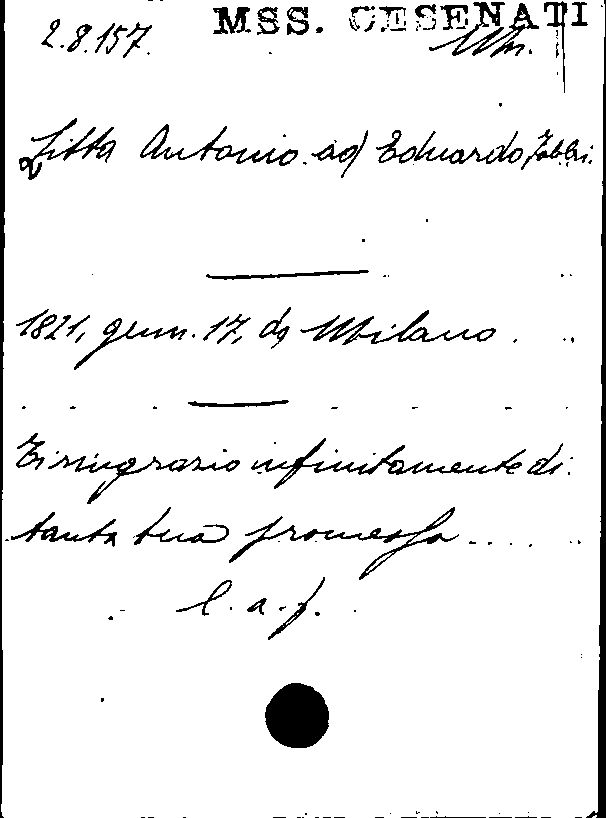 MSS. CESENATI
2.8.157.
Litta Antonio ad Eduardo Fabbri.
1821, genn. 17, da Milano.
Ti ringrazio infinitamente di
tanta tua promessa....
l. a. f.